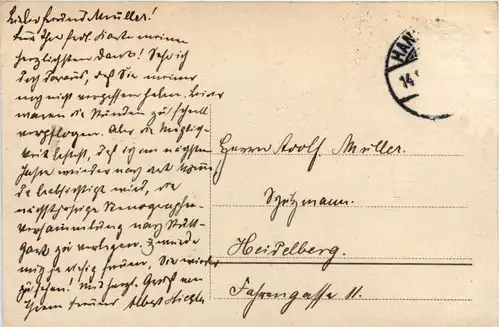 Lieber Freund Müller!
Für Ihre frdl. Karte meinen
herzlichsten Dank! Sehe ich
doch daraus, daß Sie meiner
noch nicht vergessen haben. Leider
waren die Stunden zu schnell
verflogen. Aber die Möglig-
keit besteht, daß ich im nächsten
Jahre wieder nach dort komme
da beabsichtigt wird, die
nächstjährige Stenographen-
versammlung nach Stutt-
gart zu verlegen. Ich würde
mich riesig freuen, Sie wieder
zu sehen! Mit herzl. Gruß von
Ihrem treuen Albert
HAN
14.
Herrn Adolf Müller.
Heidelberg.
Fahrengasse 11.